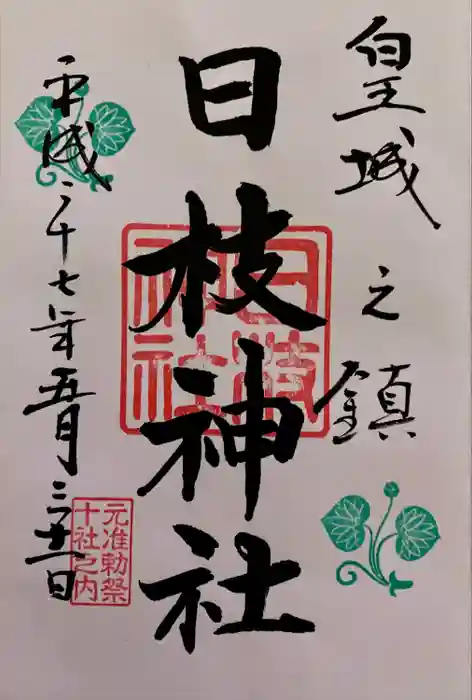 皇城之鎮
日枝神社
日枝
神社
平成二十七年五月三十一日
元准勅祭
十社之内